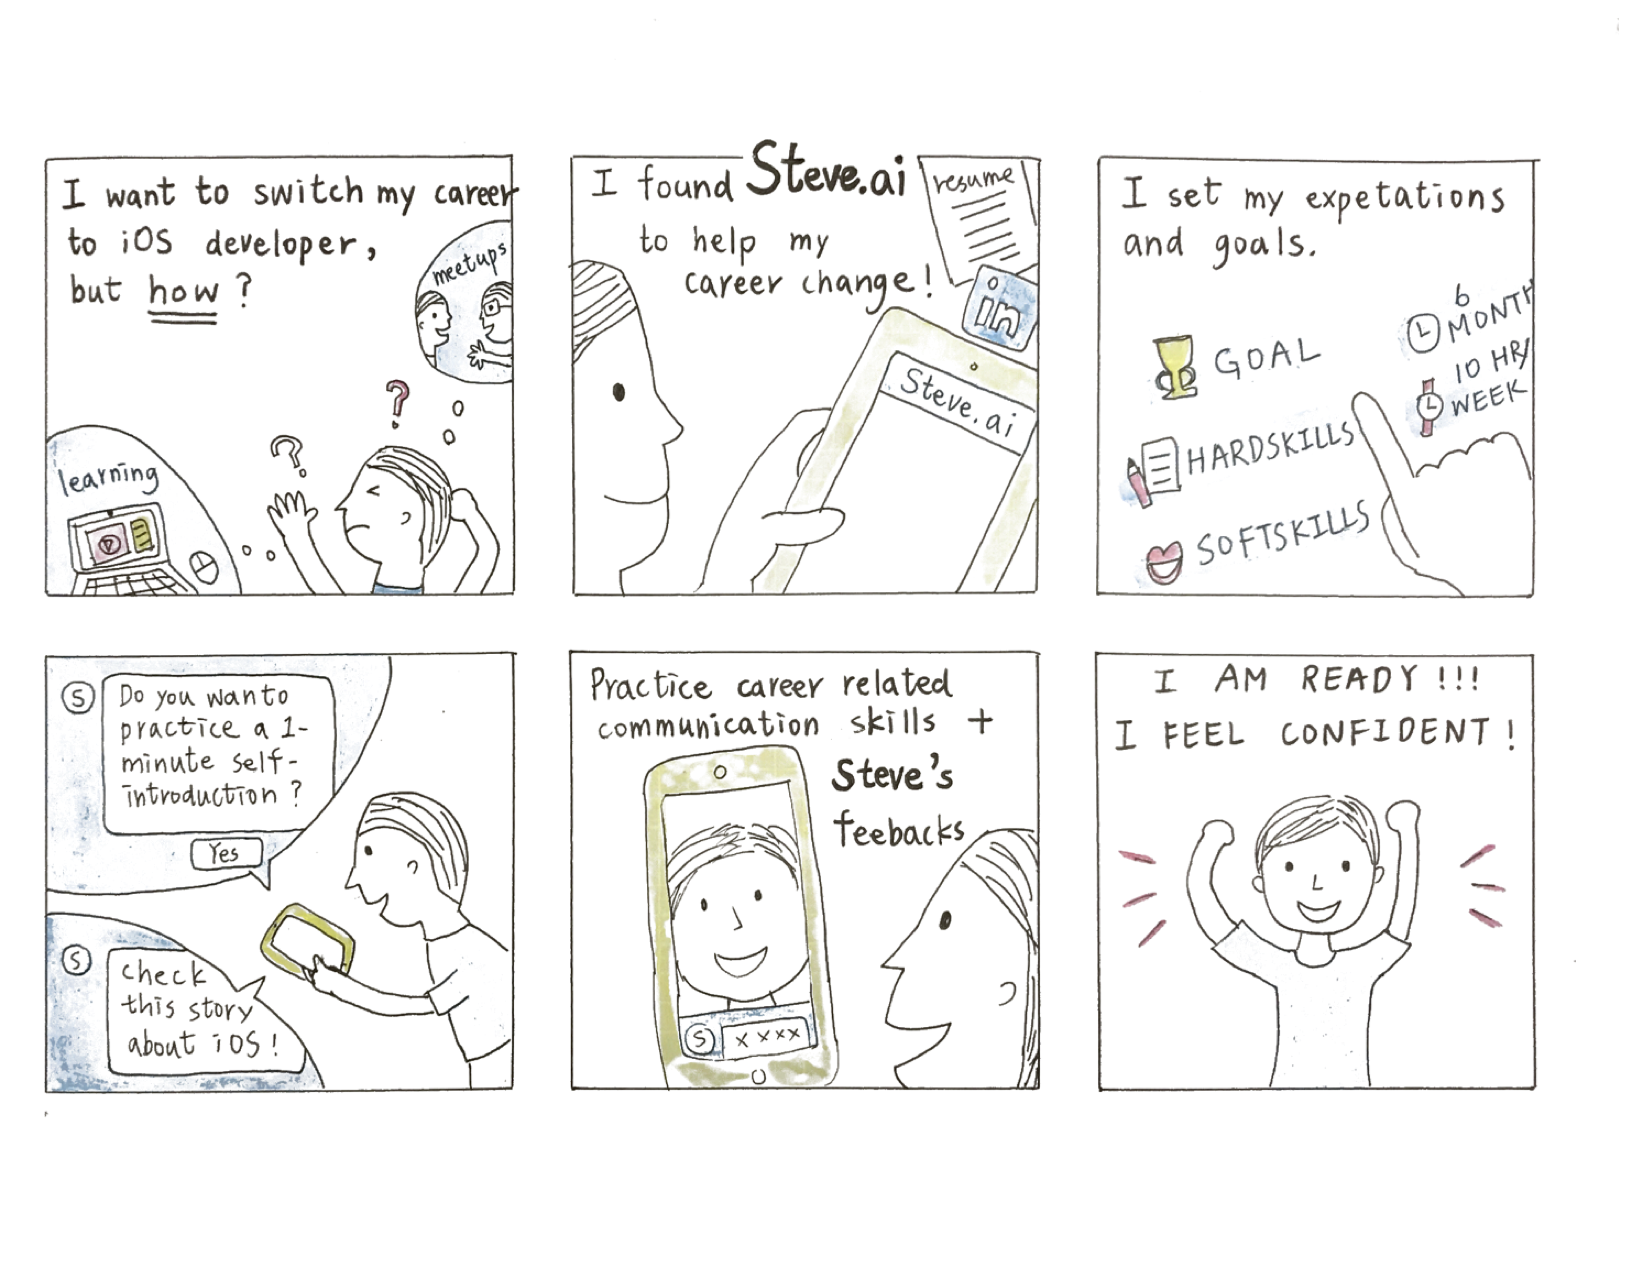 I want to switch my career
to iOS developer,
but how?
meetups
?
?
learning
I found Steve.ai
to help my
career change!
resume
in
Steve.ai
I set my expetations
and goals.
GOAL
HARDSKILLS
SOFTSKILLS
6
MONTH
10 HR/
WEEK
S
Do you wanto
practice a 1-
minute self-
introduction?
Yes
S
check
this story
about iOS!
Practice career related
communication skills +
Steve's
feebacks
S
x x x x
I AM READY!!!
I FEEL CONFIDENT!